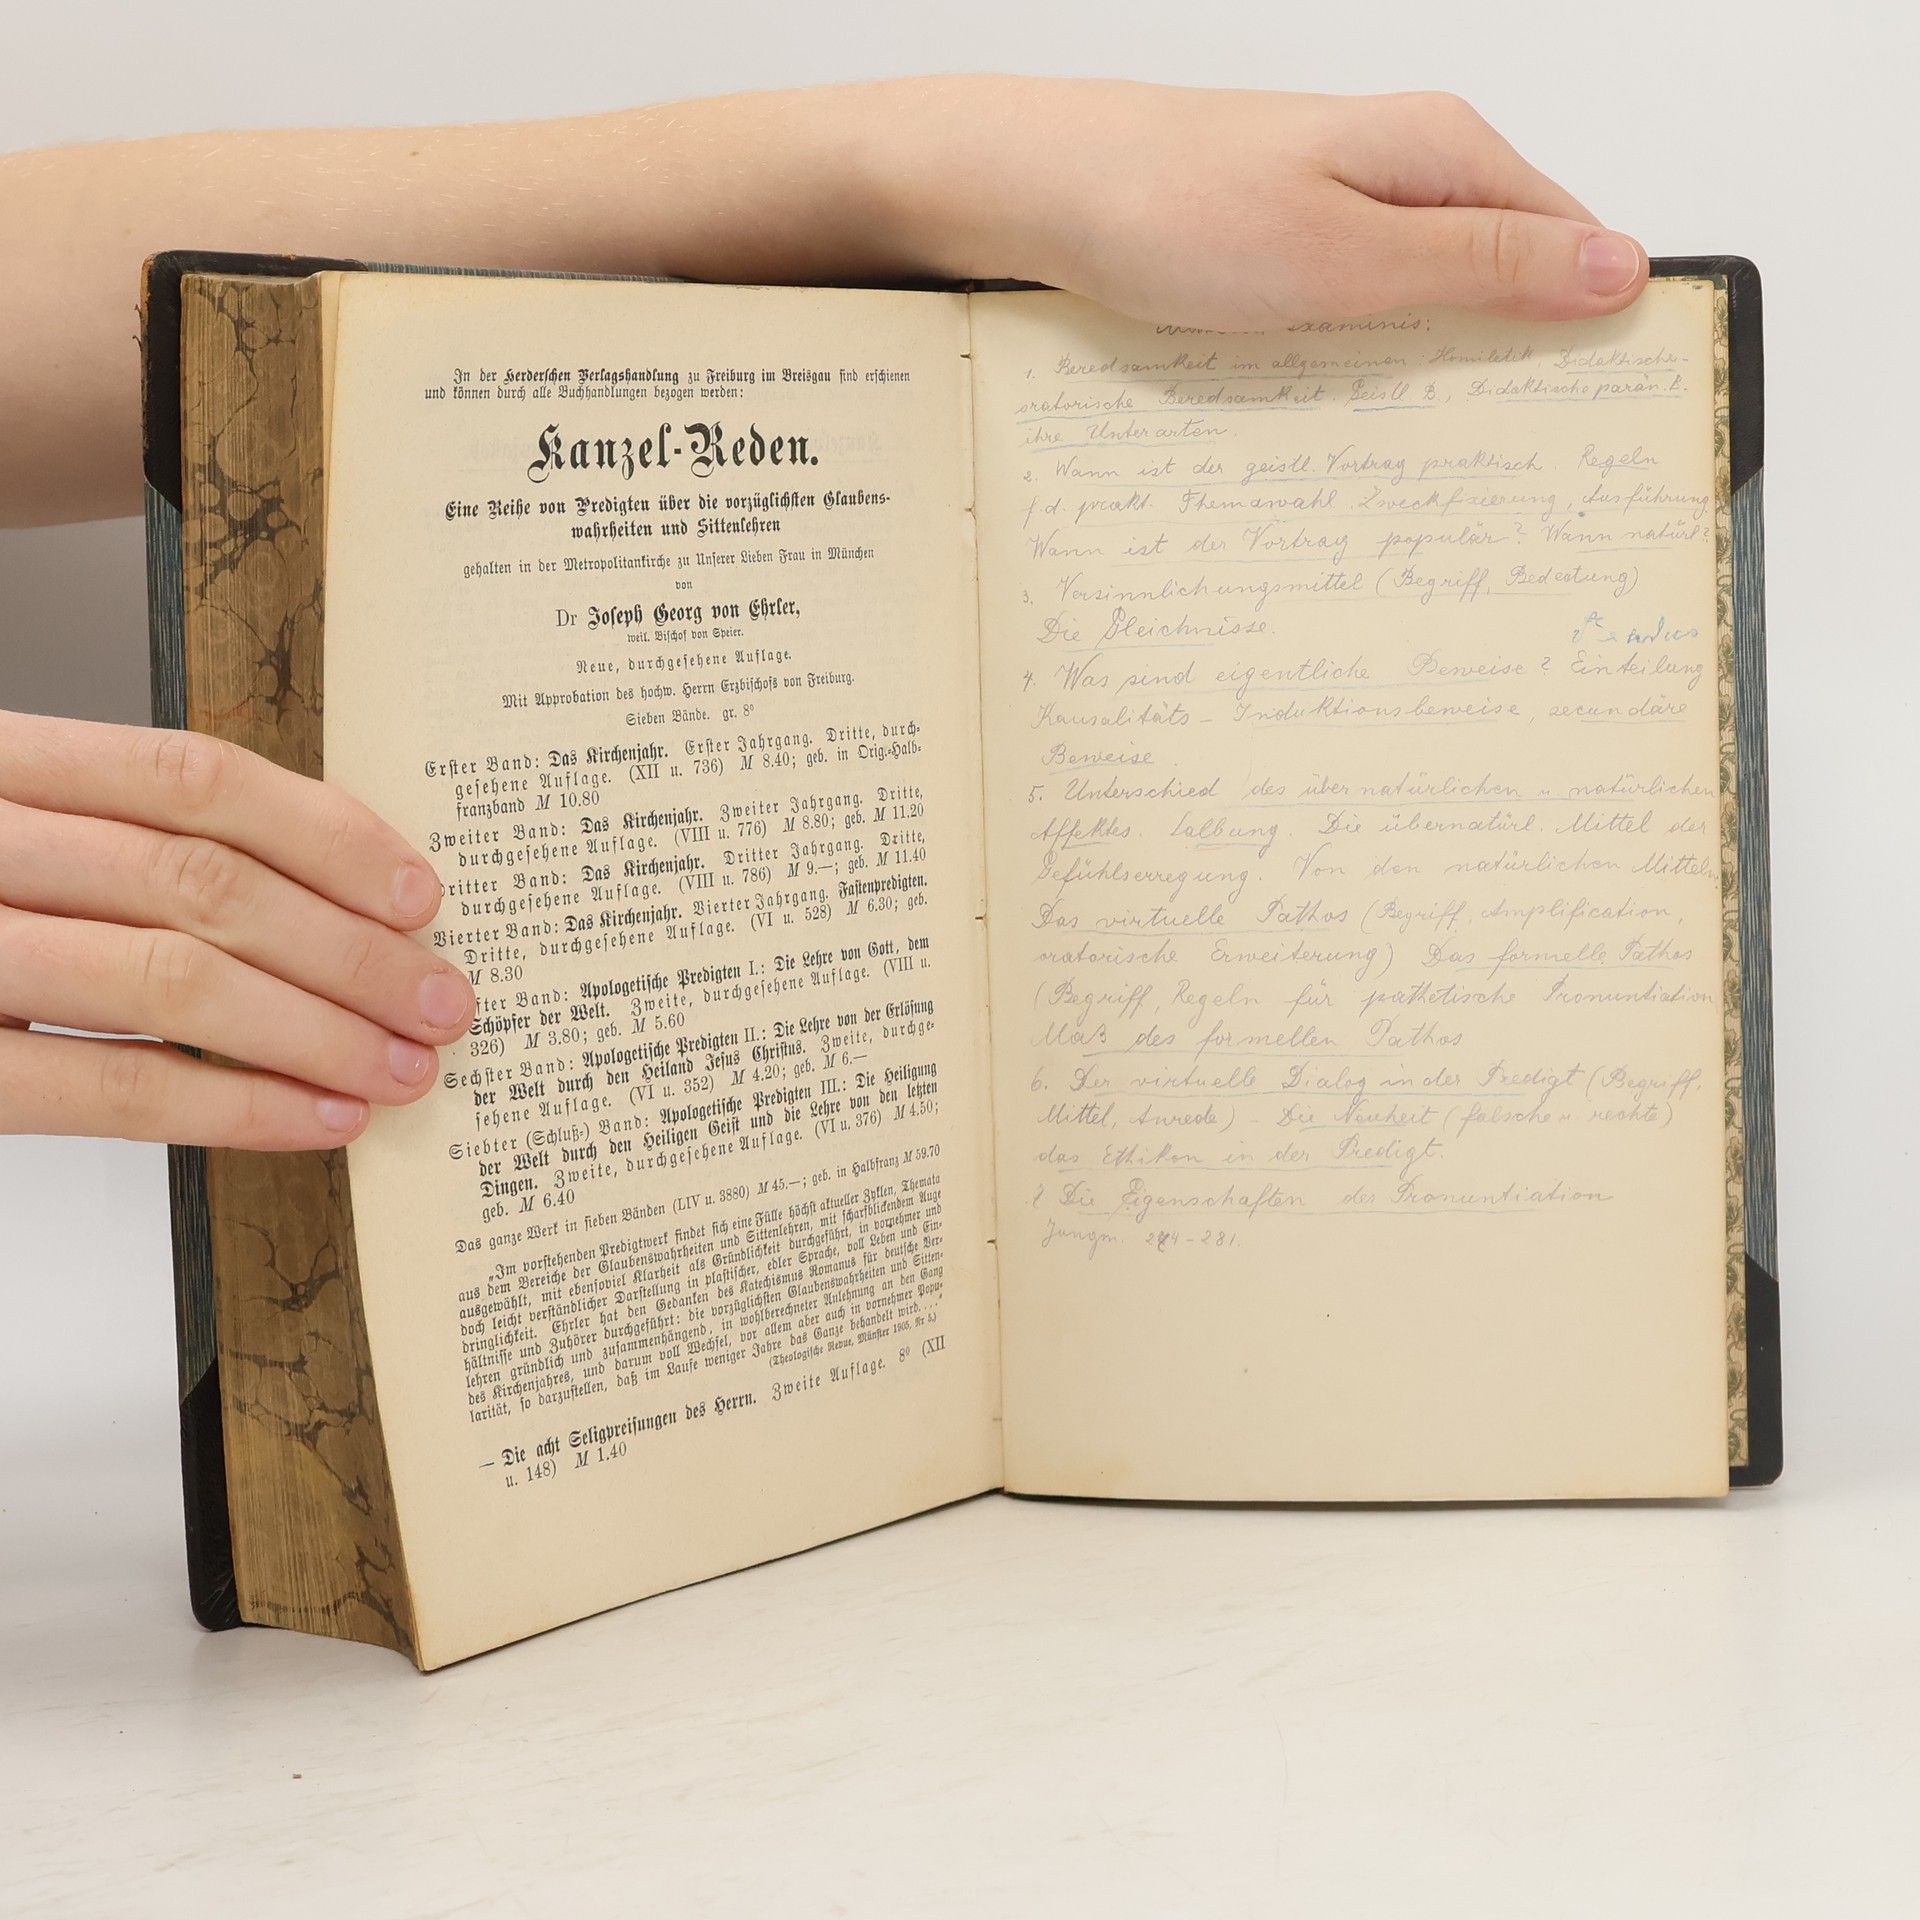 In der Herderschen Verlagshandlung zu Freiburg im Breisgau sind erschienen
und können durch alle Buchhandlungen bezogen werden:
Kanzel-Reden.
Eine Reihe von Predigten über die vorzüglichsten Glaubens-
wahrheiten und Sittenlehren
gehalten in der Metropolitankirche zu Unserer Lieben Frau in München
von
Dr Joseph Georg von Ehrler,
weil. Bischof von Speier.
Neue, durchgesehene Auflage.
Mit Approbation des hochw. Herrn Erzbischofs von Freiburg.
Sieben Bände. gr. 8°
Erster Band: Das Kirchenjahr. Erster Jahrgang. Dritte, durch-
gesehene Auflage. (XII u. 736) M 8.40; geb. in Orig.-Halb-
franzband M 10.80
Zweiter Band: Das Kirchenjahr. Zweiter Jahrgang. Dritte,
durchgesehene Auflage. (VIII u. 776) M 8.80; geb. M 11.20
Dritter Band: Das Kirchenjahr. Dritter Jahrgang. Dritte,
durchgesehene Auflage. (VIII u. 786) M 9.—; geb. M 11.40
Vierter Band: Das Kirchenjahr. Vierter Jahrgang. Fastenpredigten.
Dritte, durchgesehene Auflage. (VI u. 528) M 6.30; geb.
M 8.30
fter Band: Apologetische Predigten I.: Die Lehre von Gott, dem
Schöpfer der Welt. Zweite, durchgesehene Auflage. (VIII u.
326) M 3.80; geb. M 5.60
Sechster Band: Apologetische Predigten II.: Die Lehre von der Erlösung
der Welt durch den Heiland Jesus Christus. Zweite, durchge-
sehene Auflage. (VI u. 352) M 4.20; geb. M 6.—
Siebter (Schluß-) Band: Apologetische Predigten III.: Die Heiligung
der Welt durch den Heiligen Geist und die Lehre von den letzten
Dingen. Zweite, durchgesehene Auflage. (VI u. 376) M 4.50;
geb. M 6.40
Das ganze Werk in sieben Bänden (LIV u. 3880) M 45.—; geb. in Halbfranz M 59.70
„Im vorstehenden Predigtwerk findet sich eine Fülle höchst aktueller Zyklen, Themata
aus dem Bereiche der Glaubenswahrheiten und Sittenlehren, mit scharfblickendem Auge
ausgewählt, mit ebensoviel Klarheit als Gründlichkeit durchgeführt, in vornehmer und
doch leicht verständlicher Darstellung in plastischer, edler Sprache, voll Leben und Ein-
dringlichkeit. Ehrler hat den Gedanken des Katechismus Romanus für deutsche Ver-
hältnisse und Zuhörer durchgeführt: die vorzüglichsten Glaubenswahrheiten und Sitten-
lehren gründlich und zusammenhängend, in wohlberechneter Anlehnung an den Gang
des Kirchenjahres, und darum voll Wechsel, vor allem aber auch in vornehmer Popu-
larität, so darzustellen, daß im Laufe weniger Jahre das Ganze behandelt wird. . . ."
(Theologische Revue, Münster 1905, Nr 5.)
— Die acht Seligpreisungen des Herrn. Zweite Auflage. 8° (XII
u. 148) M 1.40
examinis:
1. Beredsamkeit im allgemeinen: Homiletik. Didaktische-
oratorische Beredsamkeit. Geistl B, Didaktische parän. B.
ihre Unterarten.
2. Wann ist der geistl. Vortrag praktisch. Regeln
f. d. prakt. Themawahl, Zweckfixierung, Ausführung.
Wann ist der Vortrag populär? Wann natürl?
3. Versinnlichungsmittel (Begriff, Bedeutung)
Die Gleichnisse.
4. Was sind eigentliche Beweise? Einteilung
Kausalitäts – Induktionsbeweise, secundäre
Beweise.
5. Unterschied des übernatürlichen u natürlichen
Affektes. Salbung. Die übernatürl. Mittel der
Gefühlserregung. Von den natürlichen Mitteln.
Das virtuelle Pathos (Begriff, Amplification,
oratorische Erweiterung) Das formelle Pathos
(Begriff, Regeln für pathetische Pronuntiation
Maß des formellen Pathos
6. Der virtuelle Dialog in der Predigt (Begriff,
Mittel, Anrede) – Die Neuheit (falsche u rechte)
das Ethikon in der Predigt.
7 Die Eigenschaften der Pronuntiation
Jungm. 274 – 281.